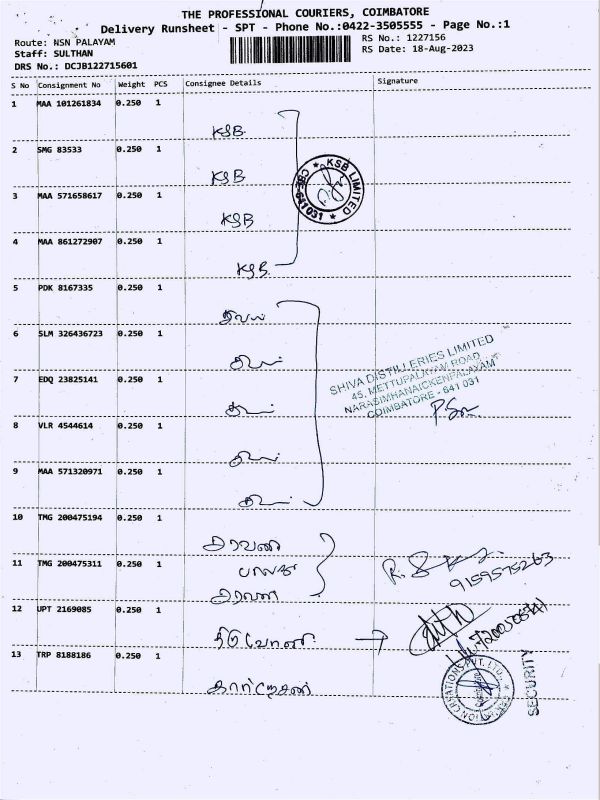 THE PROFESSIONAL COURIERS, COIMBATORE
Delivery Runsheet - SPT - Phone No.:0422-3505555 - Page No.:1
Route: NSN PALAYAM
RS No.: 1227156
Staff: SULTHAN
RS Date: 18-Aug-2023
DRS No.: DCJB122715601
S No Consignment No Weight PCS Consignee Details Signature
1 MAA 101261834 0.250 1
KSB
2 SMG 83533 0.250 1
KSB
KSB LIMITED
CBE-641031
3 MAA 571658617 0.250 1
KSB
4 MAA 861272907 0.250 1
KSB
5 PDK 8167335 0.250 1
6 SLM 326436723 0.250 1
SHIVA DISTILLERIES LIMITED
45, METTUPALAYAM ROAD
NARASIMHANAICKENPALAYAM
COIMBATORE - 641 031
7 EDQ 23825141 0.250 1
8 VLR 4544614 0.250 1
9 MAA 571320971 0.250 1
10 TMG 200475194 0.250 1
சரவண
11 TMG 200475311 0.250 1
பாலாஜி
9159575263
சரவண
12 UPT 2169085 0.250 1
13 TRP 8188186 0.250 1
SECURITY